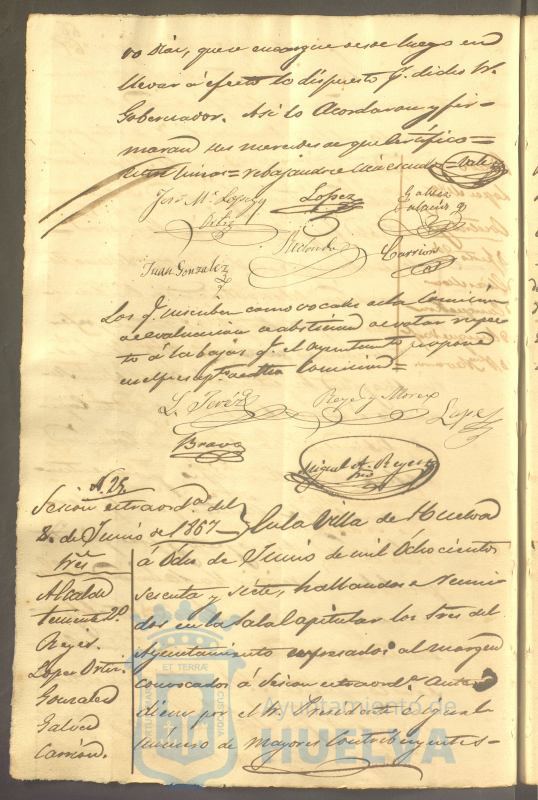 ro Dias, que se encargue desde luego en
llevar á efecto lo dispuesto p.r dicho Sr.
Gobernador. Así lo Acordaron y fir-
maron sus mercedes de que Certifico=
José M.ª Lopez y
Ortiz
Lopez
Galvez
Palacios
Redondo
Juan Gonzalez
Carrion
Los q.e suscriben como vocales de la Comision
de evaluacion se abstienen de votar respec-
to á las bajas q.e el Ayuntamiento propone
en el presup.to de dicha Comision=
L. Perez
Reyes y Morex
Lopez
Bravo
Miguel A. Reyes
N. 25
Sesion extraord.a del
8. de Junio de 1867
En la Villa de Huelva
Sres
á Ocho de Junio de mil Ochocientos
Alcalde
sesenta y siete, hallandose Reuni-
teniente 2.º
dos en la Sala Capitular los Sres del
Reyes.
Ayuntamiento expresados al margen
Lopez Ortiz.
convocados á Sesion extraord.a
Gonzalez
por el Sr. Presidente é igual
Galvez
número de Mayores Contribuyentes-
Carrion.
ET TERRÆ
Ayuntamiento de
HUELVA